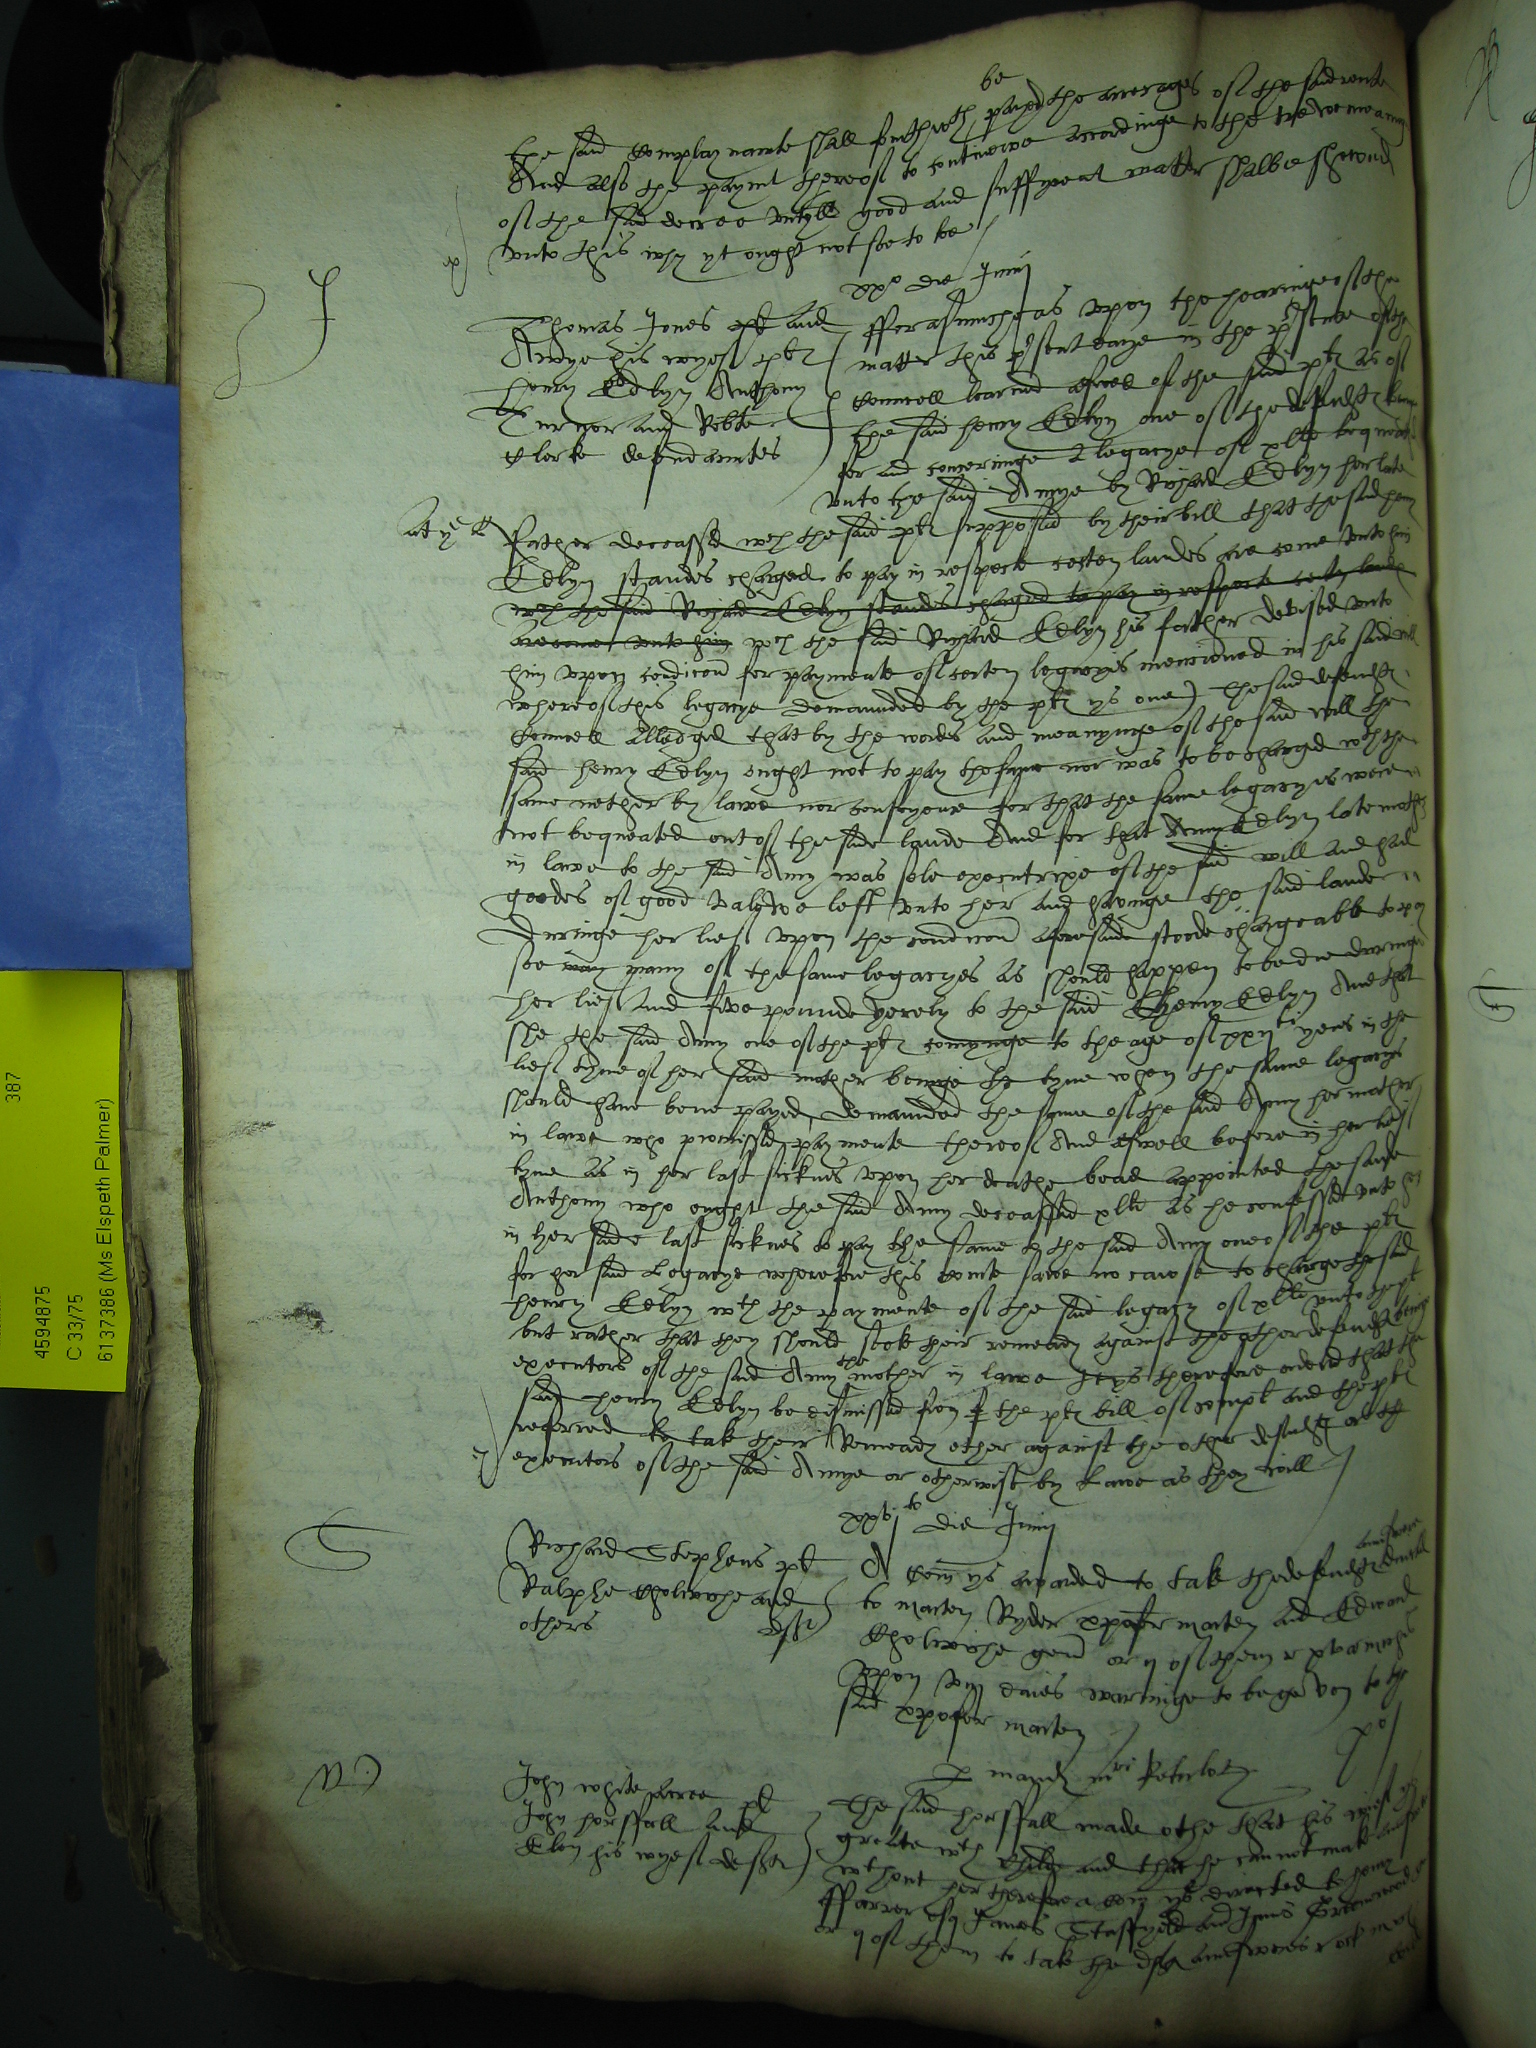 the said Complaynante shall forthwth be payed the arrerages of the said rente
And also the paymt thereof to continewe accordinge to the trewe meaninge
of the said decree untyll good and suffycent matter shalbe shewed
unto this why yt ought not soe to be
xxo die Junij
J
Thomas Jones and
Amye his wyef plt
henry Edlyn Anthony
Turnor and Robte
Clerke defendauntes
fforasmuche as upon the hearinge of the
matter this p'sent daye in the p'sence of the
Councell learned aswell of the said plt as of
the said henry Edlyn one of the defendts
for and concerninge a legacye of xlli bequeathed
unto the said Amye by Richard Edlyn her late
father deceassed wch the said plt supposed by their bill that the said henry
Edlyn standes charged to pay in respecte certen landes are come unto him
wch the said Richard Edlyn standes charged to pay in respecte certen landes
are come unto him wch the said Richard Edlyn his father devised unto
him upon condicon for paymente of certen legacyes mencioned in his said will
whereof this legacye demaunded by the plt ys one) The said defendts
Councell alledged that by the wordes and meanynge of the said will the
said henry Edlyn ought not to pay the same nor was to be charged wth the
same nether by lawe nor conscyence for that the same legacyes were
not bequeated out of the said lande And for that Amy Edlyn late mother
in lawe to the said Amy was sole executrixe of the said will and had
goodes of good valewe left unto her and havinge the said lande
Duringe her lief upon the condicon aforesaide stoode chargeable to pay
soe many of the same legacyes as should happen to be due duringe
her lief And fyve pounde yerely to the said henry Edlyn And that
she the said Amy one of the plt comynge to the age of xxjti yeres in the
lief tyme of her said mother beinge the tyme when the same legacye
should have bene payed, demaunded the same of the said Amy her mother
in lawe who promissed paymente thereof And aswell before in her lief
tyme as in her last sicknes upon her deathe bead appointed the saide
Anthony who ought the said Amy deceassed xlli as he confessed unto her
in her saide last sicknes to pay the same to the said Amy one of the plt
for her said Legacye wherefore this courte sawe no cawse to charge the said
henry Edlyn wth the paymente of the said legacy of xlli unto the plt
but rather that they should seek their remeady against the other defendts beinge
executors of the said Amy the mother in lawe It ys therefore ordered that the
said henry Edlyn be dismissed from the plt bill of compt and the plt
referred to tak their Remeady ether against the other defendts as the
executors of the said Amye or otherwise by Lawe as they will
xxvjto die Junij
S
Richard Stephens plt
Ralphe and
others deft
A Com ys awarded to tak the defendts answere
to marten Ryder xpofer marten and Edward
gent or ij of them
upon viij daies warninge to be geven to the
said xpofer marten
W
John white plt
John horsffall and
Elen his wyef deft
The said horsffall made othe that his wief ys
greate wth childe and that he cannot mak answere
wthout her therefore a com ys directed to henry
ffarrer esq James Stansfyeld and Greenwood
or ij of them to tak the deft answeres
387
4594875
C 33/75
6137386 (Ms Elspeth Palmer)